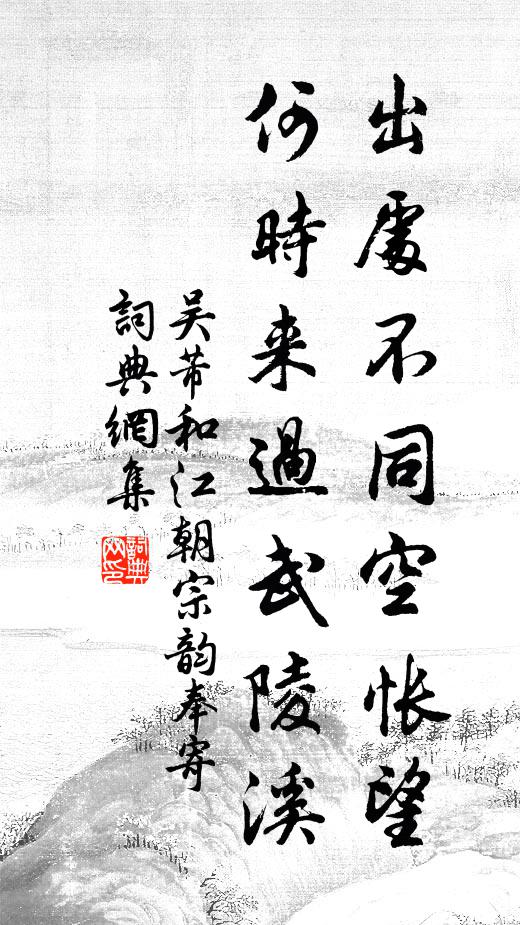 出處不同空悵望
何時来過武陵溪
吴芾和江朝宗韵奉寄
詞典網集
詞典网印